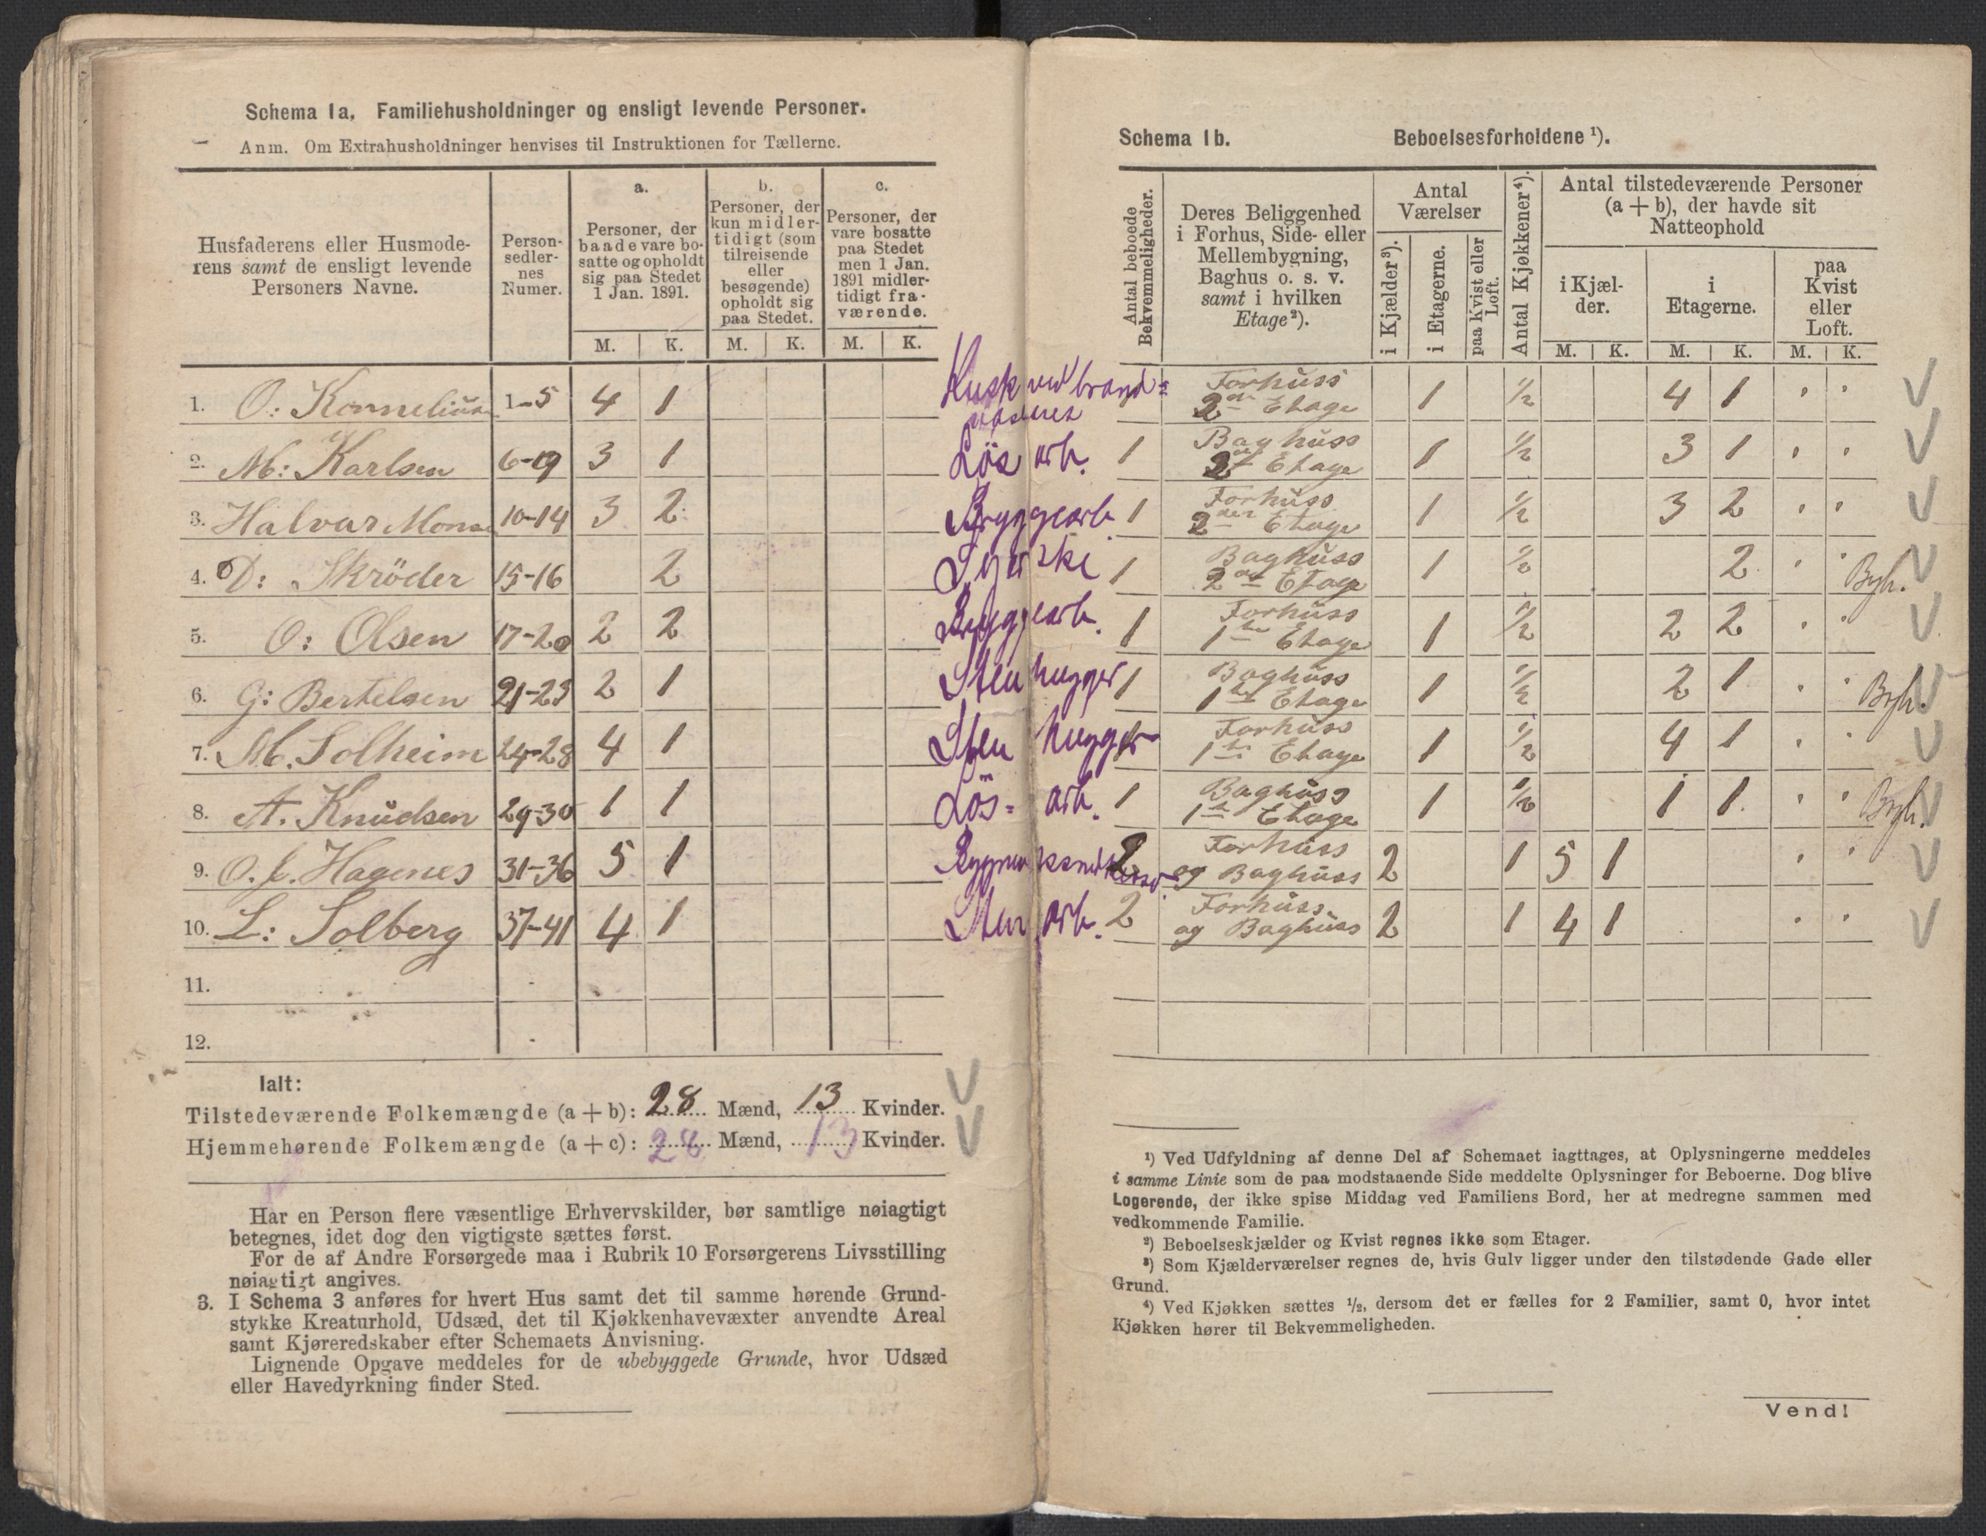 Schema 1a. Familiehusholdninger og ensligt levende Personer.
Anm. Om Extrahusholdninger henvises til Instruktionen for Tællerne.
Husfaderens eller Husmoderens samt de ensligt levende Personers Navne.
Personsedlernes Numer.
a. Personer, der baade vare bosatte og opholdt sig paa Stedet 1 Jan. 1891.
b. Personer, der kun midlertidigt (som tilreisende eller besøgende) opholdt sig paa Stedet.
c. Personer, der vare bosatte paa Stedet men 1 Jan. 1891 midlertidigt fraværende.
M. K. M. K. M. K.
1. O: Kornelius 1-5 4 1
2. M: Karlsen 6-9 3 1 Løs arb.
3. Halvar Mons 10-14 3 2 Bryggearb.
4. D: Skröder 15-16 2
5. O: Olsen 17-20 2 2 Bryggearb.
6. G: Bertelsen 21-23 2 1 Stenhugger
7. M. Solheim 24-28 4 1 Stenhugger
8. A. Knudsen 29-30 1 1 Løs-arb.
9. O. J. Hagenes 31-36 5 1
10. L: Solberg 37-41 4 1 Sten arb.
11.
12.
Ialt:
Tilstedeværende Folkemængde (a + b): 28 Mænd, 13 Kvinder.
Hjemmehørende Folkemængde (a + c): 28 Mænd, 13 Kvinder.
Har en Person flere væsentlige Erhvervskilder, bør samtlige nøiagtigt
betegnes, idet dog den vigtigste sættes først.
For de af Andre Forsørgede maa i Rubrik 10 Forsørgerens Livsstilling
nøiagtigt angives.
3. I Schema 3 anføres for hvert Hus samt det til samme hørende Grund-
stykke Kreaturhold, Udsæd, det til Kjøkkenhavevæxter anvendte Areal
samt Kjøreredskaber efter Schemaets Anvisning.
Lignende Opgave meddeles for de ubebyggede Grunde, hvor Udsæd
eller Havedyrkning finder Sted.
Schema 1b. Beboelsesforholdene ¹).
Antal beboede Bekvemmeligheder.
Deres Beliggenhed i Forhus, Side- eller Mellembygning, Baghus o. s. v. samt i hvilken Etage²).
Antal Værelser
i Kjælder³).
i Etagerne.
paa Kvist eller Loft.
Antal Kjøkkener⁴).
Antal tilstedeværende Personer (a + b), der havde sit Natteophold
i Kjælder.
i Etagerne.
paa Kvist eller Loft.
M. K. M. K. M. K.
Forhuss
2den Etage 1 ½ 4 1
1 Baghuss
2den Etage 1 ½ 3 1
1 Forhuss
2den Etage 1 ½ 3 2
1 Baghuss
2den Etage 1 ½ 2 Bgh.
1 Forhuss
1ste Etage 1 ½ 2 2
1 Baghuss
1ste Etage 1 ½ 2 1 Bgh.
1 Forhuss
1ste Etage 1 ½ 4 1
1 Baghuss
1ste Etage 1 ½ 1 1 Bgh.
2 Forhuss
og Baghuss 2 1 5 1
2 Forhuss
og Baghuss 2 1 4 1
¹) Ved Udfyldning af denne Del af Schemaet iagttages, at Oplysningerne meddeles
i samme Linie som de paa modstaaende Side meddelte Oplysninger for Beboerne. Dog blive
Logerende, der ikke spise Middag ved Familiens Bord, her at medregne sammen med
vedkommende Familie.
²) Beboelseskjælder og Kvist regnes ikke som Etager.
³) Som Kjælderværelser regnes de, hvis Gulv ligger under den tilstødende Gade eller
Grund.
⁴) Ved Kjøkken sættes ½, dersom det er fælles for 2 Familier, samt 0, hvor intet
Kjøkken hører til Bekvemmeligheden.
Vend!